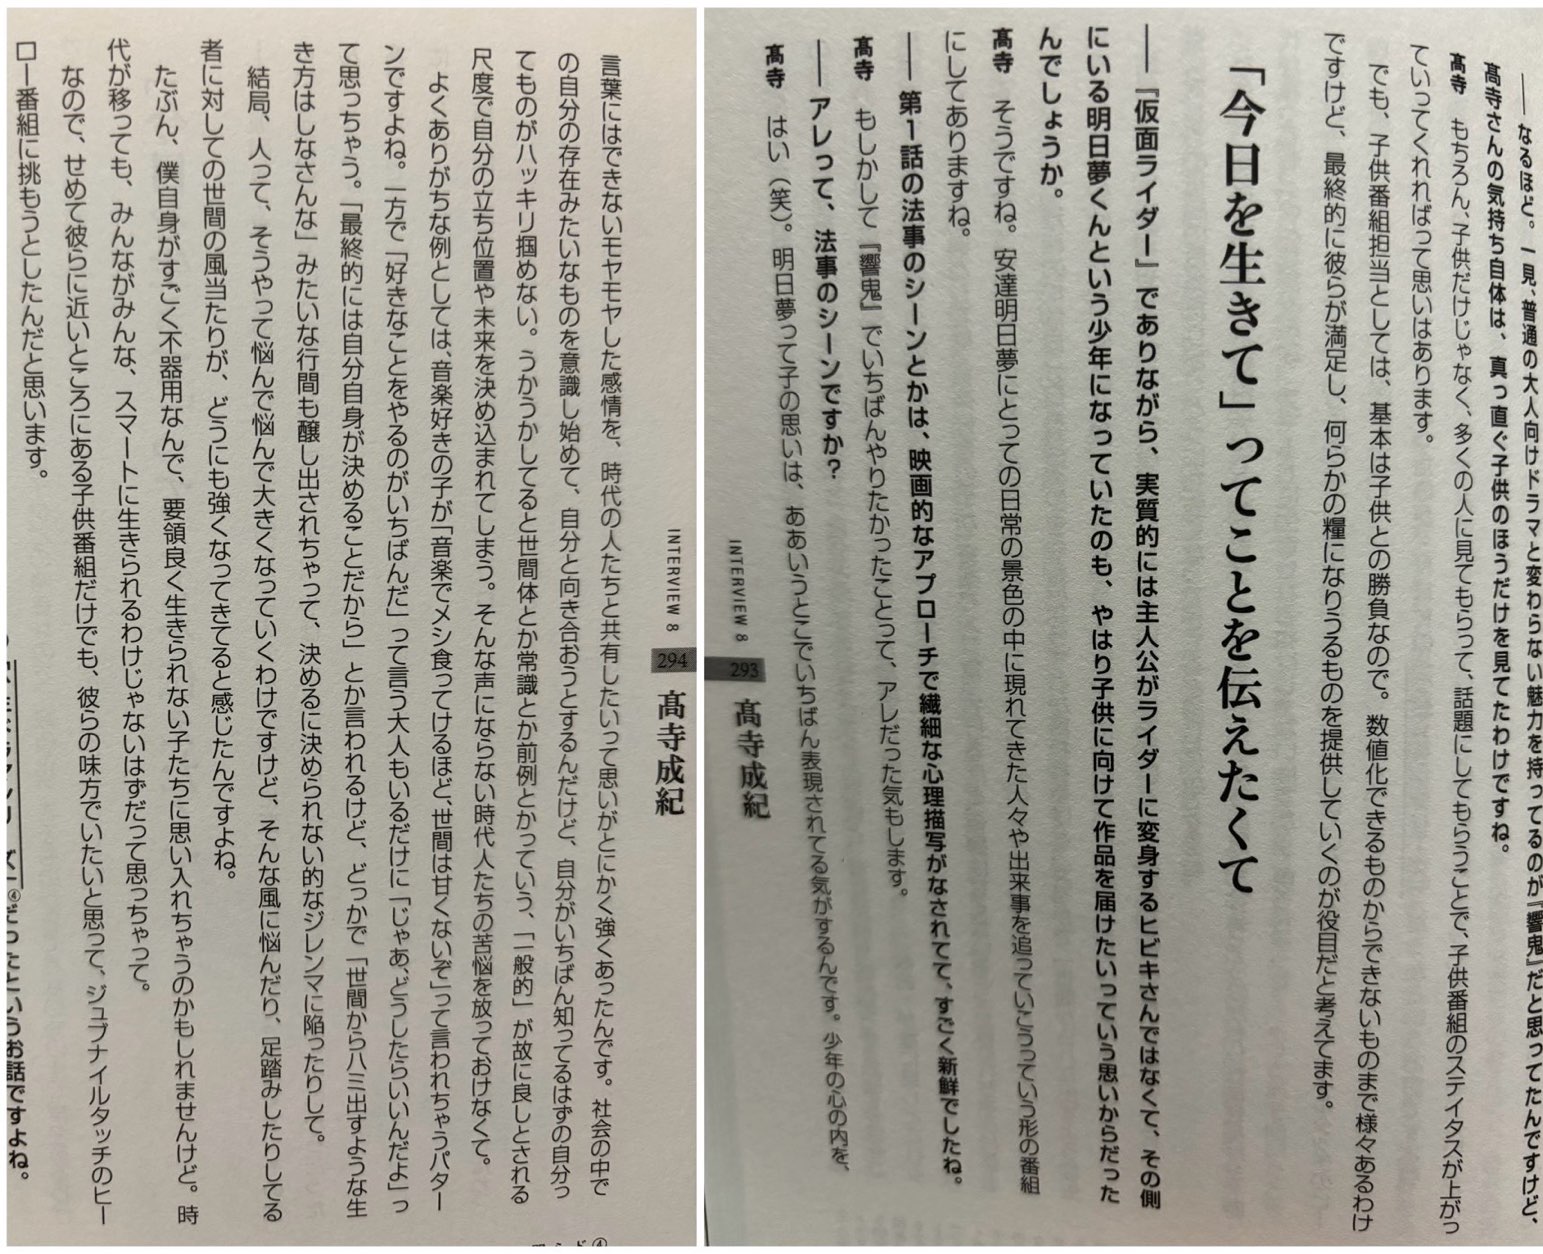 ――なるほど。一見、普通の大人向けドラマと変わらない魅力を持ってるのが『響鬼』だと思ってたんですけど、
髙寺さんの気持ち自体は、真っ直ぐ子供のほうだけを見てたわけですね。
髙寺 もちろん、子供だけじゃなく、多くの人に見てもらって、話題にしてもらうことで、子供番組のステイタスが上がっ
ていってくれればって思いはあります。
でも、子供番組担当としては、基本は子供との勝負なので。数値化できるものからできないものまで様々あるわけ
ですけど、最終的に彼らが満足し、何らかの糧になりうるものを提供していくのが役目だと考えてます。
「今日を生きて」ってことを伝えたくて
――『仮面ライダー』でありながら、実質的には主人公がライダーに変身するヒビキさんではなくて、その側
にいる明日夢くんという少年になっていたのも、やはり子供に向けて作品を届けたいっていう思いからだった
んでしょうか。
髙寺 そうですね。安達明日夢にとっての日常の景色の中に現れてきた人々や出来事を追っていこうっていう形の番組
にしてありますね。
――第1話の法事のシーンとかは、映画的なアプローチで繊細な心理描写がなされてて、すごく新鮮でしたね。
髙寺 もしかして『響鬼』でいちばんやりたかったことって、アレだった気もします。
――アレって、法事のシーンですか?
髙寺 はい(笑)。明日夢って子の思いは、ああいうとこでいちばん表現されてる気がするんです。少年の心の内を、
INTERVIEW 8 293 髙寺成紀
INTERVIEW 8 294 髙寺成紀
言葉にはできないモヤモヤした感情を、時代の人たちと共有したいって思いがとにかく強くあったんです。社会の中で
の自分の存在みたいなものを意識し始めて、自分と向き合おうとするんだけど、自分がいちばん知ってるはずの自分っ
てものがハッキリ掴めない。うかうかしてると世間体とか常識とか前例とかっていう、「一般的」が故に良しとされる
尺度で自分の立ち位置や未来を決め込まれてしまう。そんな声にならない時代人たちの苦悩を放っておけなくて。
よくありがちな例としては、音楽好きの子が「音楽でメシ食ってけるほど、世間は甘くないぞ」って言われちゃうパター
ンですよね。一方で「好きなことをやるのがいちばんだ」って言う大人もいるだけに「じゃあ、どうしたらいいんだよ」っ
て思っちゃう。「最終的には自分自身が決めることだから」とか言われるけど、どっかで「世間からハミ出すような生
き方はしなさんな」みたいな行間も醸し出されちゃって、決めるに決められない的なジレンマに陥ったりして。
結局、人って、そうやって悩んで悩んで大きくなっていくわけですけど、そんな風に悩んだり、足踏みしたりしてる
者に対しての世間の風当たりが、どうにも強くなってきてると感じたんですよね。
たぶん、僕自身がすごく不器用なんで、要領良く生きられない子たちに思い入れちゃうのかもしれませんけど。時
代が移っても、みんながみんな、スマートに生きられるわけじゃないはずだって思っちゃって。
なので、せめて彼らに近いところにある子供番組だけでも、彼らの味方でいたいと思って、ジュブナイルタッチのヒー
ロー番組に挑もうとしたんだと思います。